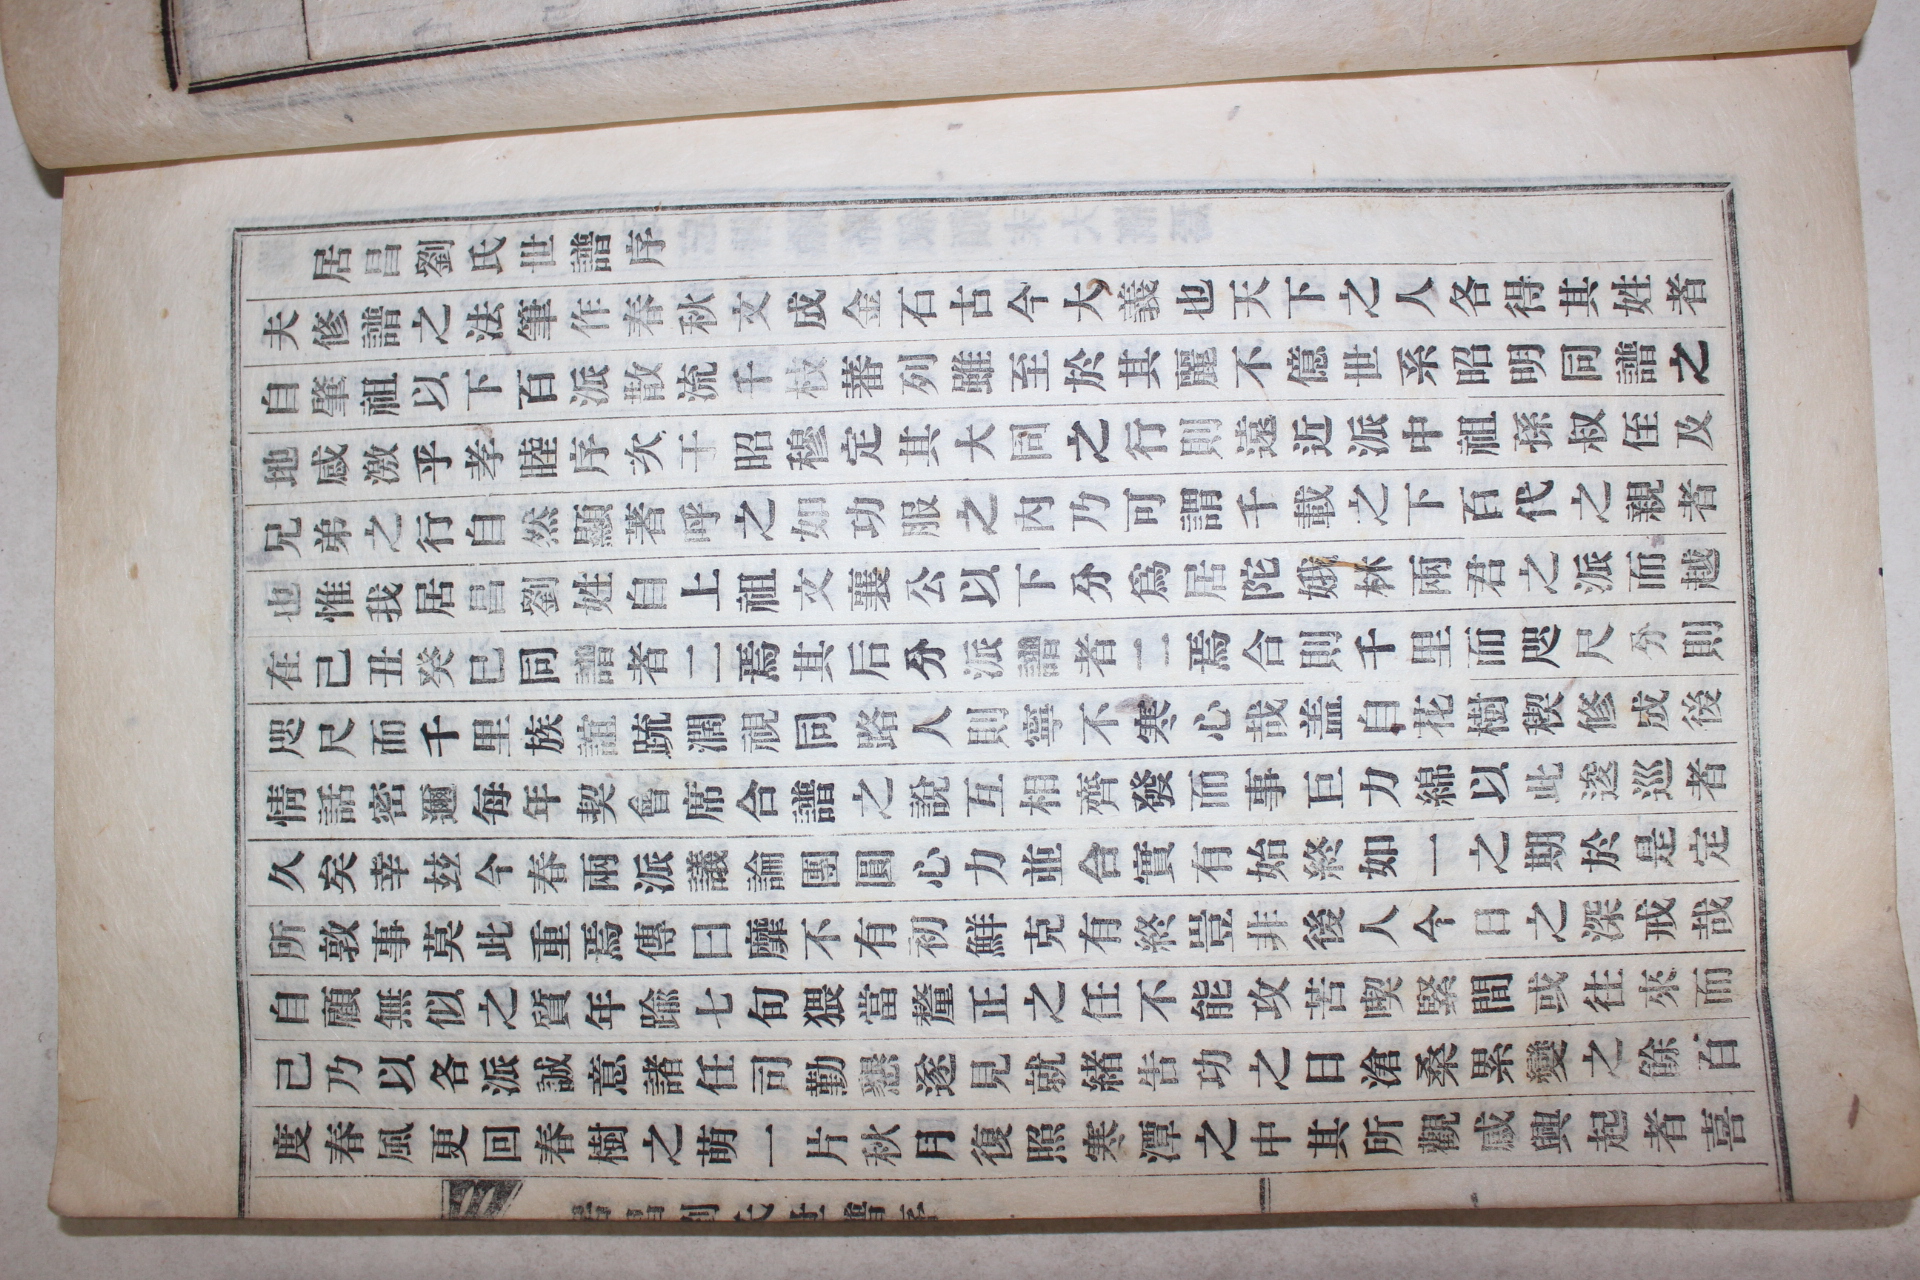 居昌劉氏世譜序
夫修譜之法筆作春秋文成金石古今大義也天下之人各得其姓者
自肇祖以下百派散流千枝蕃列雖至於其麗不億世系昭明同譜之
地感激乎孝睦序次于昭穆定其大同之行則遠近派中祖孫叔侄及
兄弟之行自然顯著呼之如功服之內乃可謂千載之下百代之親者
也惟我居昌劉姓自上祖文襄公以下分爲居陀娥林兩君之派而越
在己丑癸巳同譜者二焉其后分派譜者二焉合則千里而咫尺分則
咫尺而千里族誼疏濶視同路人則寧不寒心哉盖自花樹稧修成後
情話密邇每年契會席合譜之說互相齊發而事巨力綿以此逡巡者
久矣幸玆今春兩派議論團圓心力並合實有始終如一之期於是定
所敦事莫此重焉傳曰靡不有初鮮克有終豈非後人今日之深戒哉
自顧無似之質年踰七旬猥當釐正之任不能攻苦喫緊間或往來而
己乃以各派誠意諸任司勤懇遂見就緒告功之日滄桑累變之餘百
度春風更回春樹之萌一片秋月復照寒潭之中其所觀感興起者喜
居昌劉氏世譜序